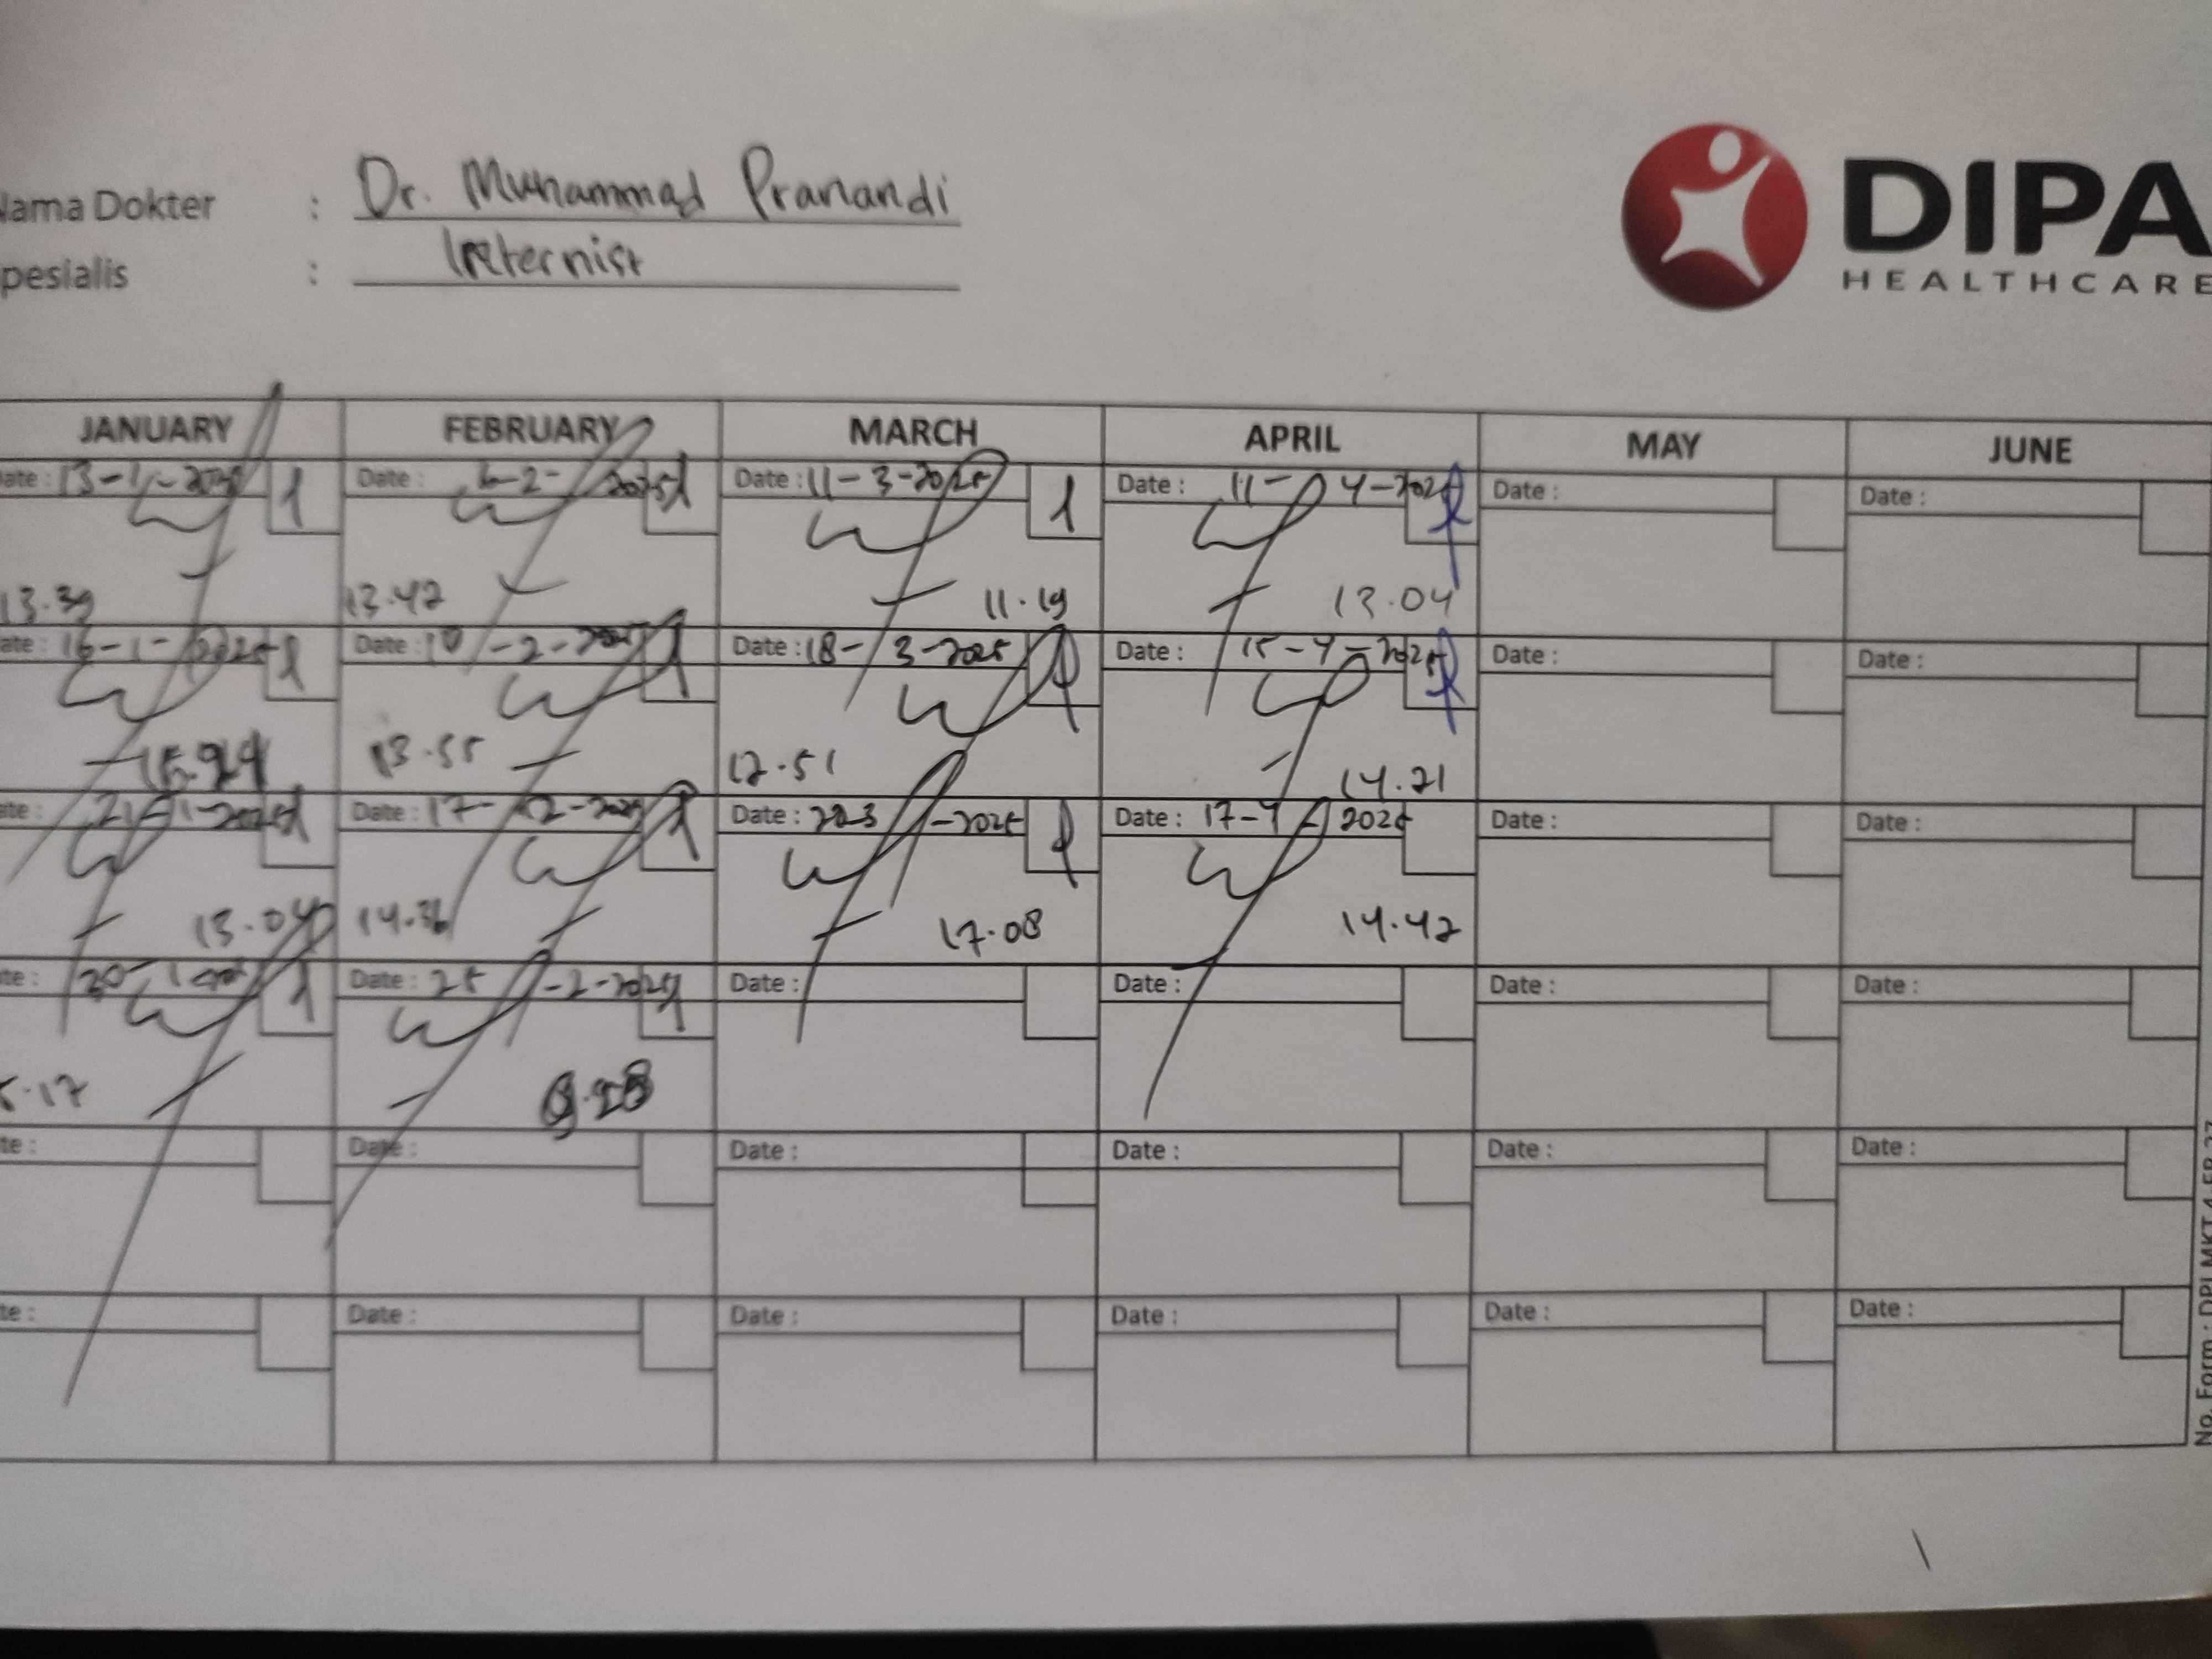 DIPA
HEALTHCARE
Nama Dokter : Dr. Muhammad Pranandi
Spesialis : Internist
JANUARY FEBRUARY MARCH APRIL MAY JUNE
Date : 13-1-2025 Date : 6-2-2025 Date : 11-3-2025 Date : 11-4-2025 Date : Date :
13.39 13.42 11.19 13.04
Date : 16-1-2025 Date : 10-2-2025 Date : 18-3-2025 Date : 15-4-2025 Date : Date :
13.55 12.51 14.21
Date : 21-1-2025 Date : 17-2-2025 Date : 22-3-2025 Date : 17-4-2025 Date : Date :
13.04 14.36 17.08 14.42
Date : 30-1- Date : 25-2-2025 Date : Date : Date : Date :
.17
Date : Date : Date : Date : Date : Date :
Date : Date : Date : Date : Date : Date :
No. Form : DPI